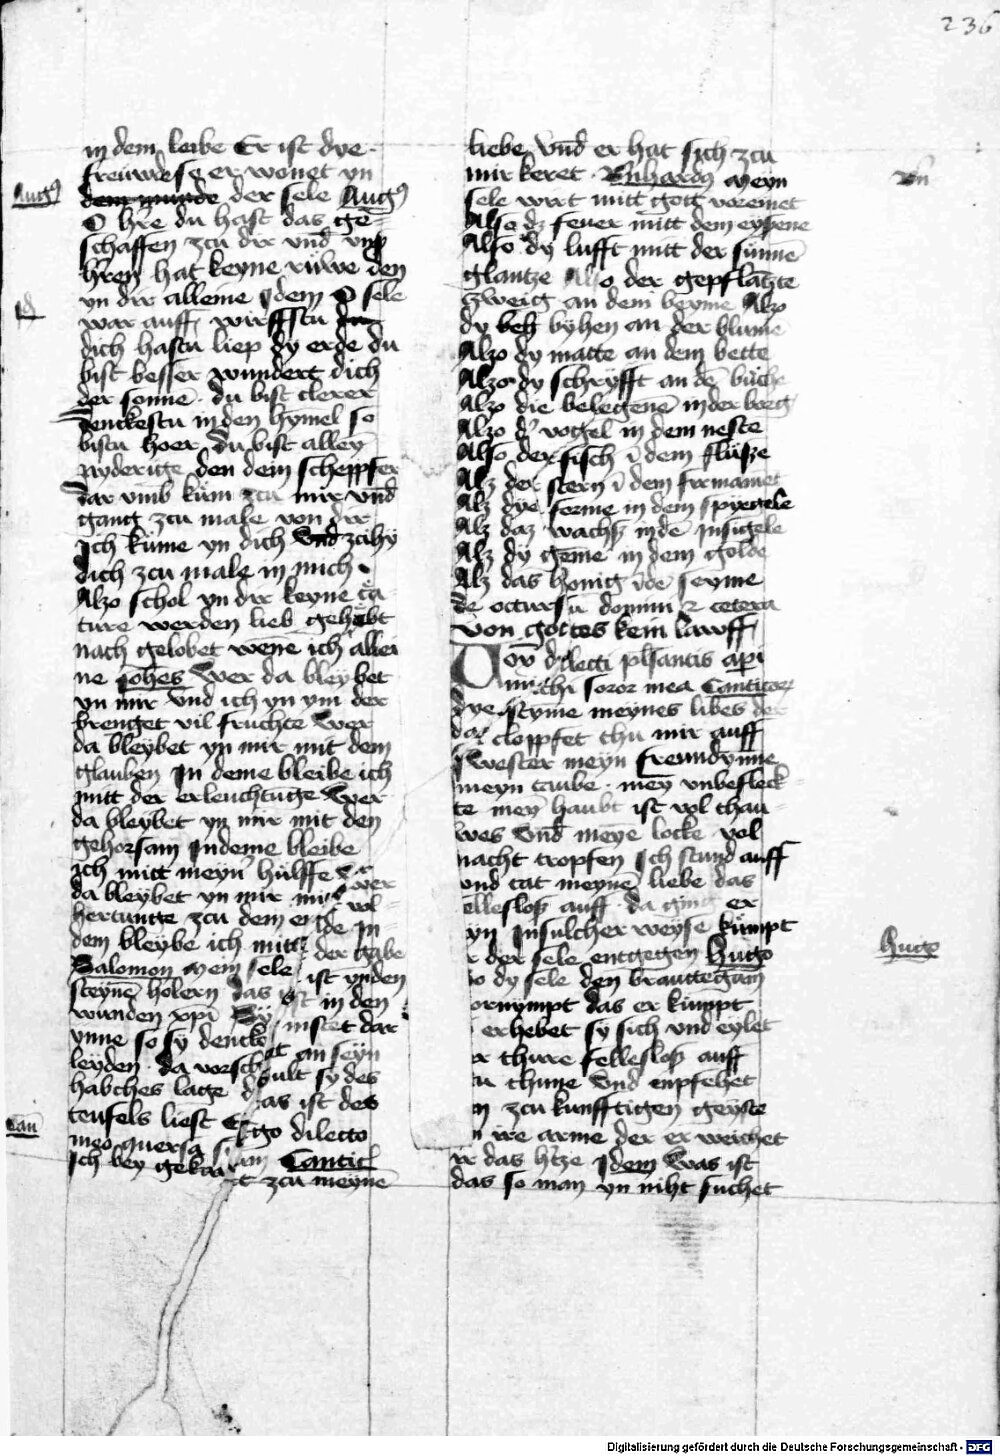 236
in dem leibe Er ist dye
freuwde so er wonet yn
dem munde der sele Augꝰ
Augꝰ
O hr̄e du hast das ge
schaffen zcu dir vnd vnß
hr̄en hat keyne rüwe den
yn dir alleine Jdem O sele
Jd
war auff wirffstu du
dich hastu liep dy erde du
bist besser wundert dich
der sonne du bist clerer
denckestu in den hymel so
bistu hoer du bist alleȳ
nyderige den dem scheppfer
dar vmb kum zcu mir vnd
gang zcu male von dir
Jch kume yn dich vnd zcihy
dich zcu male in mich
Alzo schol yn dir keyne c̄a
ture werden lieb gehabt
nach gelobet wene ich allei
ne Joh̄es Wer da bleybet
yn mir vnd ich yn ym der
brenget vil fruchte Wer
da bleybet yn mir mit dem
glauben Jn deme bleibe ich
mitt der erleuchtūge Wer
da bleybet yn mir mit den
gehorsam Jndeme bleibe
ich mitt meyn̄ hulffe Wer
da bleybet yn mir mit vol
hertunge zcu dem ende Jn
dem bleybe ich mitt der gabe
Salomon Mein sele ist yn den
steyne holern das ist in den
wunden xp̄i Sy nistet dar
ynne so sy dencket an seyn
leyden da vorschult sy des
habches lage das ist des
teufels liest Ego dilecto
Can̄
meo quersa sum Cantic̄
Jch bey gekart zcu meyne
liebe vnd er hat sich zcu
mir keret Bn̄hardꝰ Meyn
Bn̄
sele wirt mitt gott voreinet
Also dz feuer mitt dem eysene
Also dy lufft mitt der sunne
glantze Also der gepflātzte
zweig an dem beyme Alzo
dy byhen an der blume
Alzo dy matte an dem bette
Alzo dy schryfft an dē buche
Alzo die belegene in der borg
Alzo d' vogel in dem neste
Also der fisch ī dem flusze
Alz der stern ī dem firmamet
Alz dye forme in dem spygele
Alz daz wachß indē Jnsigele
Alz dy geme in dem golde
Alz das honig īde seyme
de occursu domini ⁊ cetera
von gottes kein lawff
Vox dilecti plsantis aperi
michi soror mea Canticorꝫ
dye styme meynes libes der
da cloppfet thu mir auff
swester meyn freundynne
meyn taube mey vnbefleck
te mey haubt ist vol thau
wes vnd meyē locke vol
nacht tropfen Jch stund auff
vnd tat meynē liebe das
velleslosz auff da ging er
yn Jnsulcher weyse kumpt
der sele entgegen Hugo
Hugo
so dy sele den brauttegam
vornympt das er kumpt
erhebet sy sich vnd eylet
thure felleslosz auff
thune vnd enpfehet
zcu kunfftigen geyste
ire arme der er weichet
ir das hr̄tze Jdem Was ist
das so man yn niht suchet
Digitalisierung gefördert durch die Deutsche Forschungsgemeinschaft - DFG